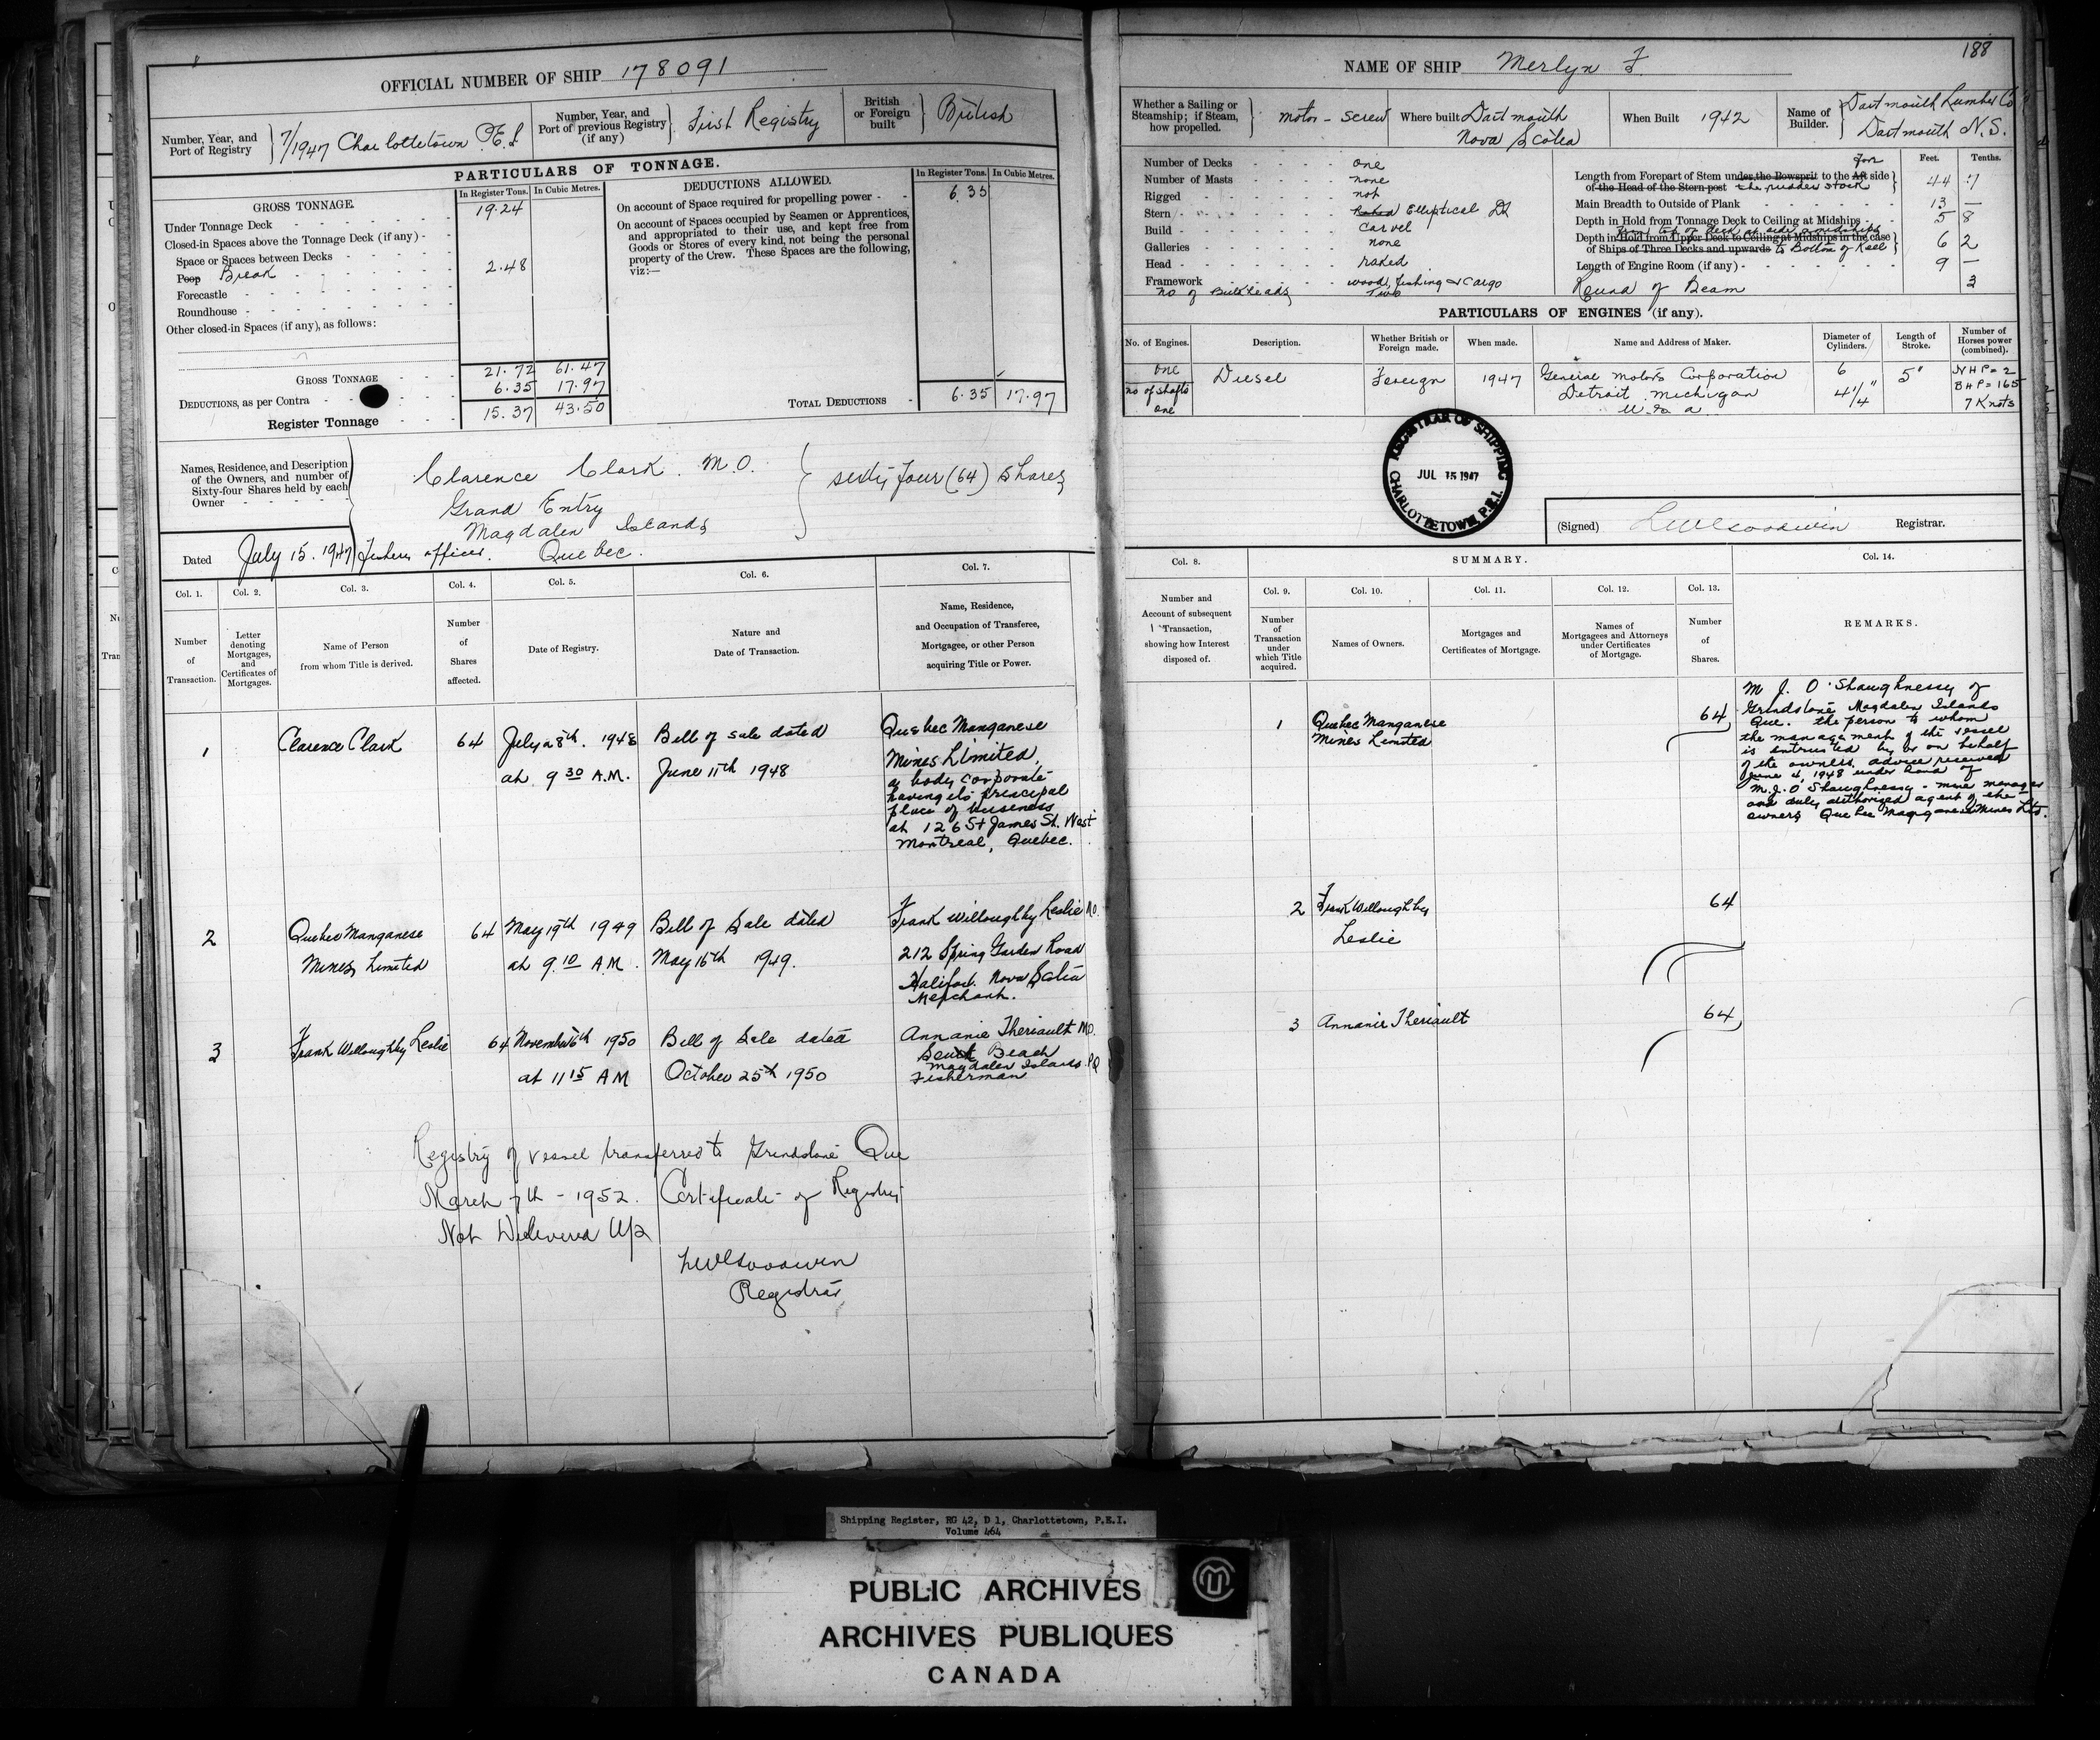 OFFICIAL NUMBER OF SHIP 178091
Number, Year, and
Port of Registry
7/1947 Charlottetown P.E.I
Number, Year, and
Port of previous Registry
(if any)
First Registry
British
or Foreign
built
British
PARTICULARS OF TONNAGE.
GROSS TONNAGE.
In Register Tons. In Cubic Metres.
Under Tonnage Deck 19.24
Closed-in Spaces above the Tonnage Deck (if any)
Space or Spaces between Decks
Poop Break 2.48
Forecastle
Roundhouse
Other closed-in Spaces (if any), as follows:
GROSS TONNAGE 21.72 61.47
DEDUCTIONS, as per Contra 6.35 17.97
Register Tonnage 15.37 43.50
DEDUCTIONS ALLOWED.
In Register Tons. In Cubic Metres.
On account of Space required for propelling power 6.35
On account of Spaces occupied by Seamen or Apprentices,
and appropriated to their use, and kept free from
Goods or Stores of every kind, not being the personal
property of the Crew. These Spaces are the following,
viz:—
TOTAL DEDUCTIONS 6.35 17.97
Names, Residence, and Description
of the Owners, and number of
Sixty-four Shares held by each
Owner
Clarence Clark. M.O.
Grand Entry
Magdalen Islands
Quebec.
sixty four (64) Shares
Dated July 15. 1947 Fishery officer.
Col. 1. Col. 2. Col. 3. Col. 4. Col. 5. Col. 6. Col. 7.
Number
of
Transaction.
Letter
denoting
Mortgages,
and
Certificates of
Mortgages.
Name of Person
from whom Title is derived.
Number
of
Shares
affected.
Date of Registry.
Nature and
Date of Transaction.
Name, Residence,
and Occupation of Transferee,
Mortgagee, or other Person
acquiring Title or Power.
1
Clarence Clark
64
July 28th. 1948
at 9 30 A.M.
Bill of sale dated
June 11th 1948
Quebec Manganese
Mines Limited,
a body corporate
having its principal
place of business
at 126 St James St. West
Montreal, Quebec.
2
Quebec Manganese
Mines Limited
64
May 19th 1949
at 9.10 A.M.
Bill of Sale dated
May 16th 1949.
Frank Willoughby Leslie M.O.
212 Spring Garden Road
Halifax. Nova Scotia
Merchant.
3
Frank Willoughby Leslie
64
November 6th 1950
at 11 15 A M
Bill of Sale dated
October 25th 1950
Annanie Theriault M.O.
South Beach
Magdalen Islands. P.Q
Fisherman
Registry of vessel transferred to Grindstone Que
March 7th - 1952. Certificate of Registry
Not Delivered Up
LWGoodwin
Registrar
188
NAME OF SHIP Merlyn F.
Whether a Sailing or
Steamship; if Steam,
how propelled.
motor - screw
Where built Dartmouth
Nova Scotia
When Built 1942
Name of
Builder.
Dartmouth Lumber Co
Dartmouth N.S.
Number of Decks one
Number of Masts none
Rigged not
Stern Raked Elliptical
Build carvel
Galleries none
Head raked
Framework wood, fishing & cargo
No of Bulkheads Two
Feet. Tenths.
Length from Forepart of Stem under the Bowsprit to the Aft Fore side
of the Head of the Stern-post the rudder stock 44 .7
Main Breadth to Outside of Plank 13 —
Depth in Hold from Tonnage Deck to Ceiling at Midships 5 8
from top of deck at side amidships
Depth in Hold from Upper Deck to Ceiling at Midships in the case
of Ships of Three Decks and upwards to Bottom of Keel 6 2
Length of Engine Room (if any) 9 —
Round of Beam 3
PARTICULARS OF ENGINES (if any).
No. of Engines. Description. Whether British or
Foreign made. When made. Name and Address of Maker. Diameter of
Cylinders. Length of
Stroke. Number of
Horses power
(combined).
one
no of shafts
one
Diesel
Foreign
1947
General Motors Corporation
Detroit. Michigan
U. S. a
6
4 1/4"
5"
NHP = 2
BHP = 165
7 Knots
REGISTRAR OF SHIPPING
JUL 15 1947
CHARLOTTETOWN, P.E.I.
(Signed) LWGoodwin Registrar.
Col. 8. SUMMARY. Col. 14.
Col. 9. Col. 10. Col. 11. Col. 12. Col. 13.
Number and
Account of subsequent
Transaction,
showing how Interest
disposed of.
Number
of
Transaction
under
which Title
acquired.
Names of Owners.
Mortgages and
Certificates of Mortgage.
Names of
Mortgagees and Attorneys
under Certificates
of Mortgage.
Number
of
Shares.
REMARKS.
1
Quebec Manganese
Mines Limited
64
M J. O'Shaughnessy of
Grindstone Magdalen Islands
Que. the person to whom
the management of the vessel
is entrusted by or on behalf
of the owners, advice received
June 4, 1948 under hand of
M.J. O'Shaughnessy - mine manager
and duly authorized agent of the
owners Quebec Manganese Mines Ltd.
2
Frank Willoughby
Leslie
64
3
Annanie Theriault
64
Shipping Register, RG 42, D 1, Charlottetown, P.E.I.
Volume 464
PUBLIC ARCHIVES
ARCHIVES PUBLIQUES
CANADA